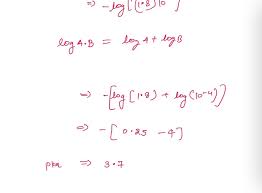 => -log [(1.8)10
log A.B = log A + log B
=> -[log [1.8) + log (10⁻⁴)]
=> -[0.25 -4]
pka => 3.7